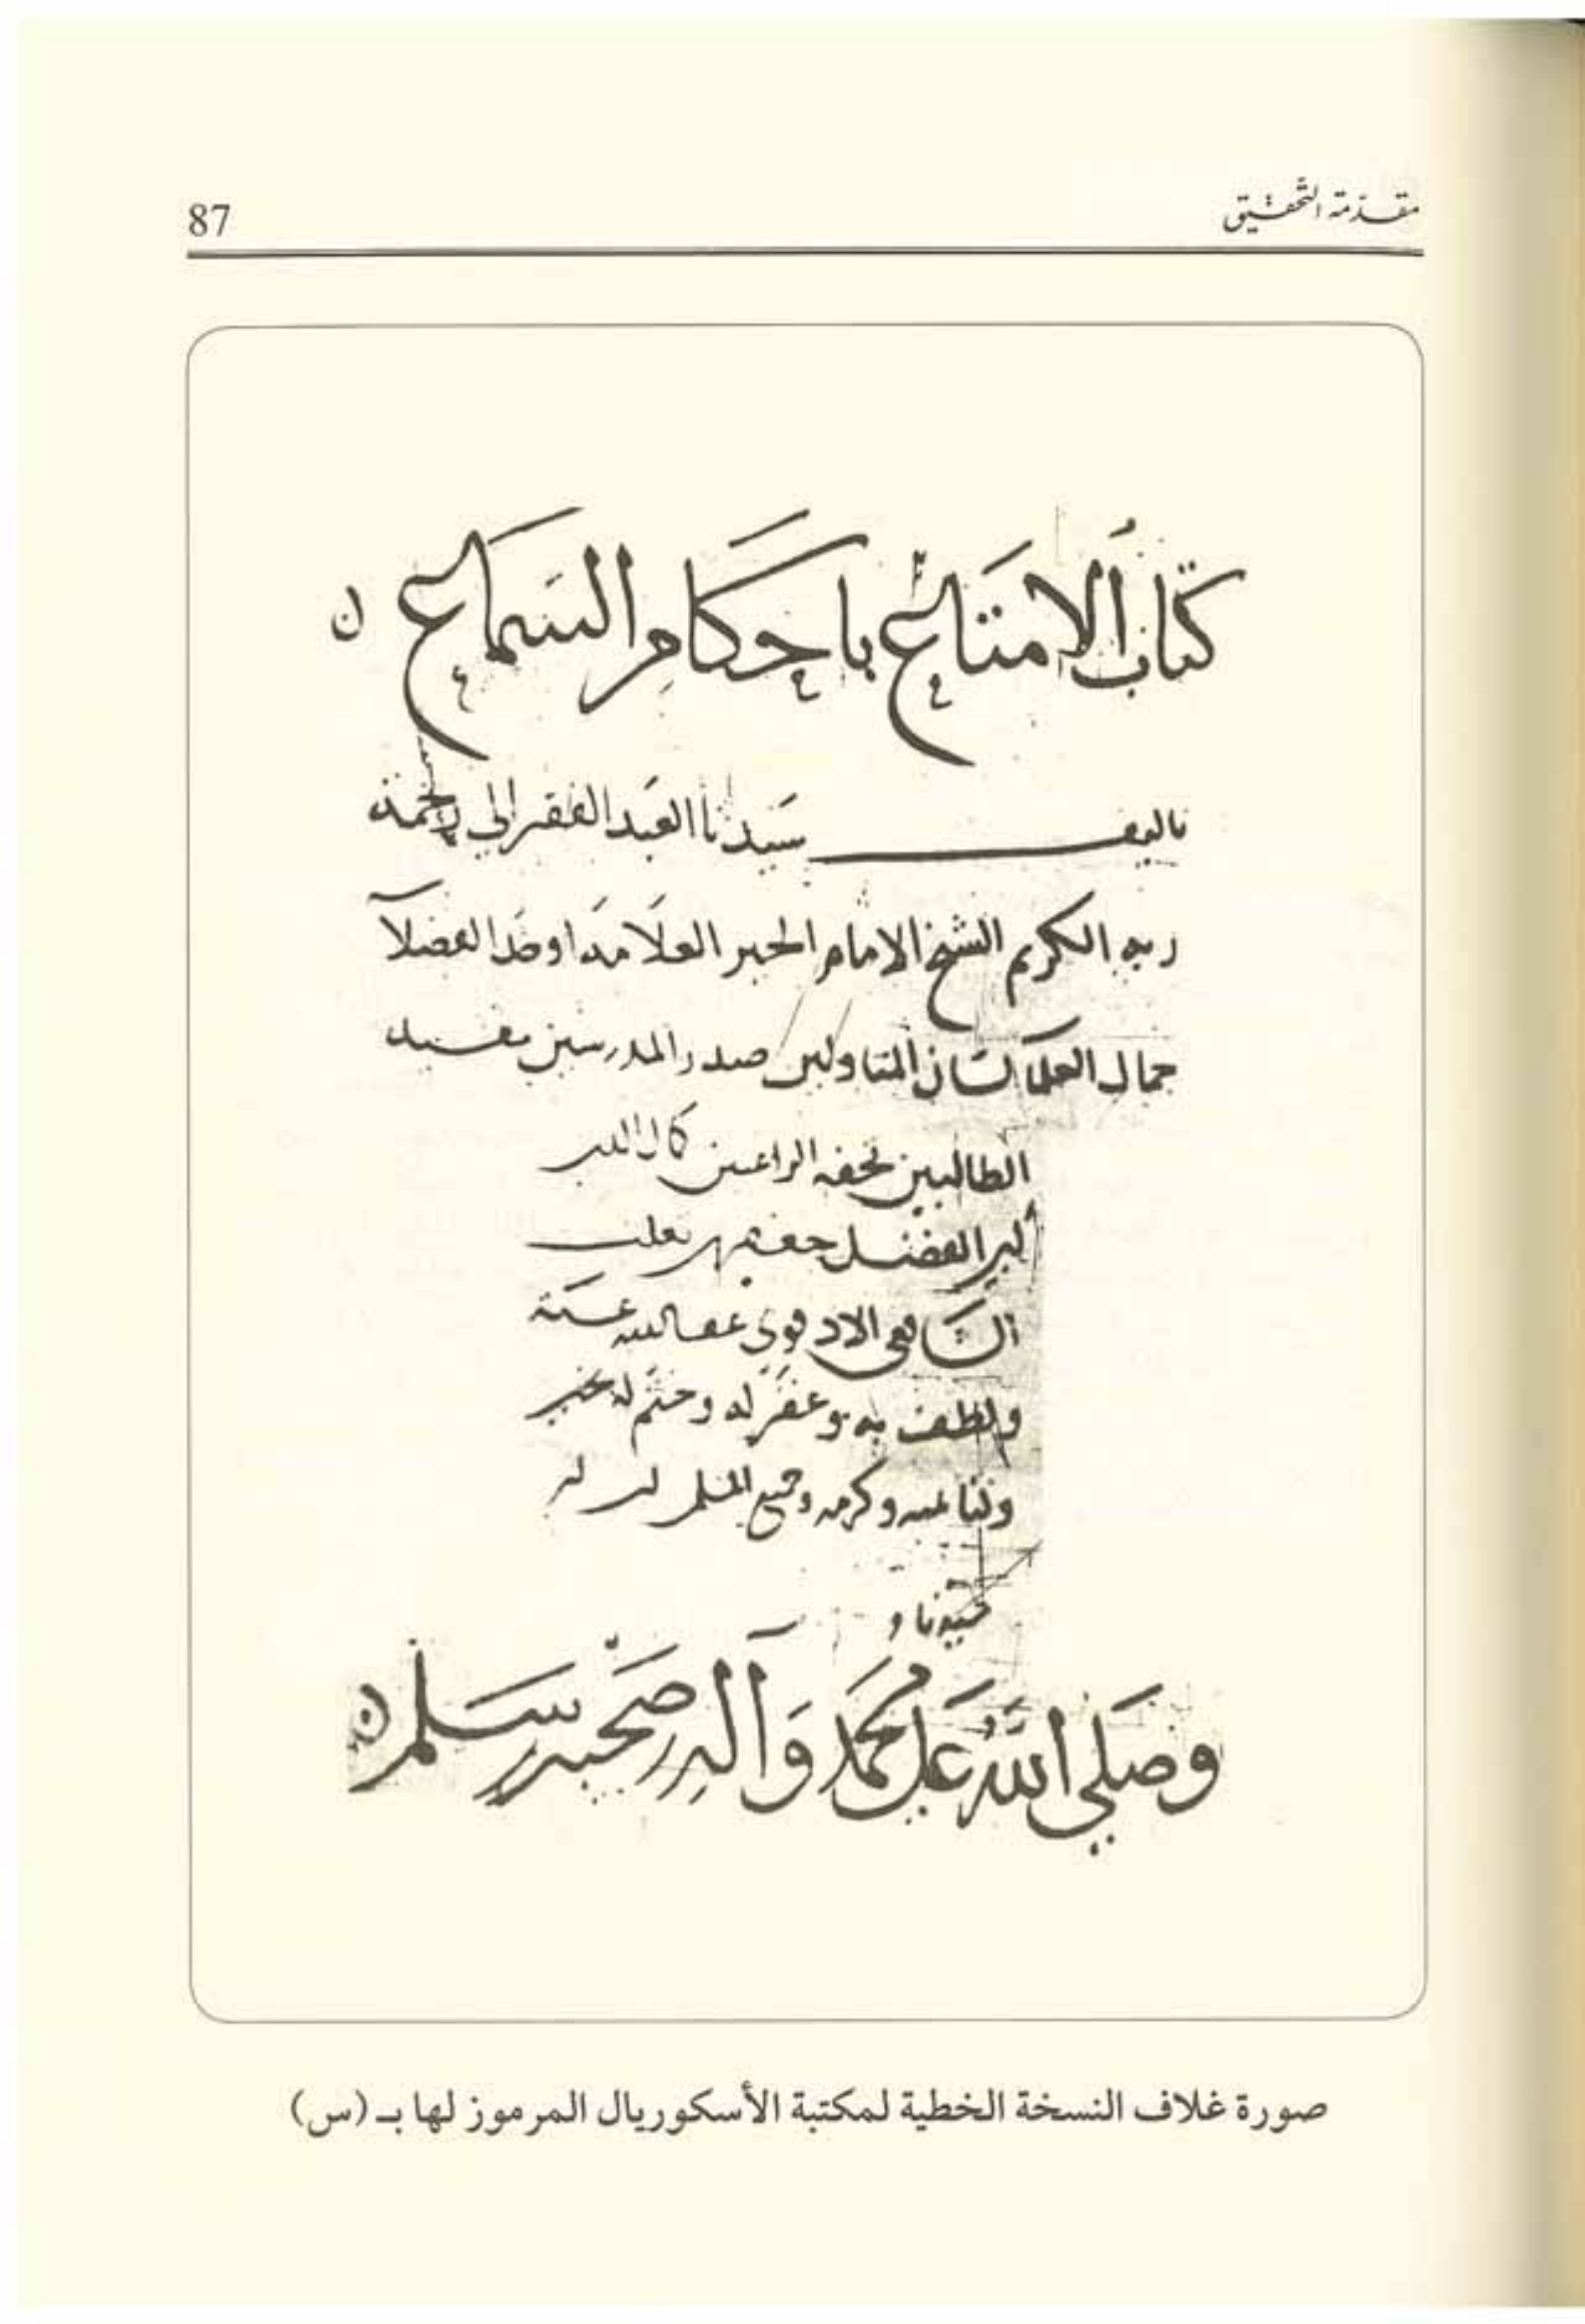 مقدمة التحقيق
87
كتاب الامتاع باحكام السماع
تاليف سيدنا العبد الفقير الي رحمة
ربه الكريم الشيخ الامام الحبر العلامه اوحد الفضلا
جمال العلما لسان المتاولين صدر المدرسين مفيد
الطالبين تحفه الراغبين كمال الدين
ابي الفضل جعفر بن تغلب
الشافعي الادفوي عفا الله عنه
ولطف به وغفر له وختم له بخير
ولنا بمنه وكرمه وجميع المسلمين
سيدنا و
وصلي الله علي محمد وآله وصحبه وسلم
صورة غلاف النسخة الخطية لمكتبة الأسكوريال المرموز لها بـ (س)